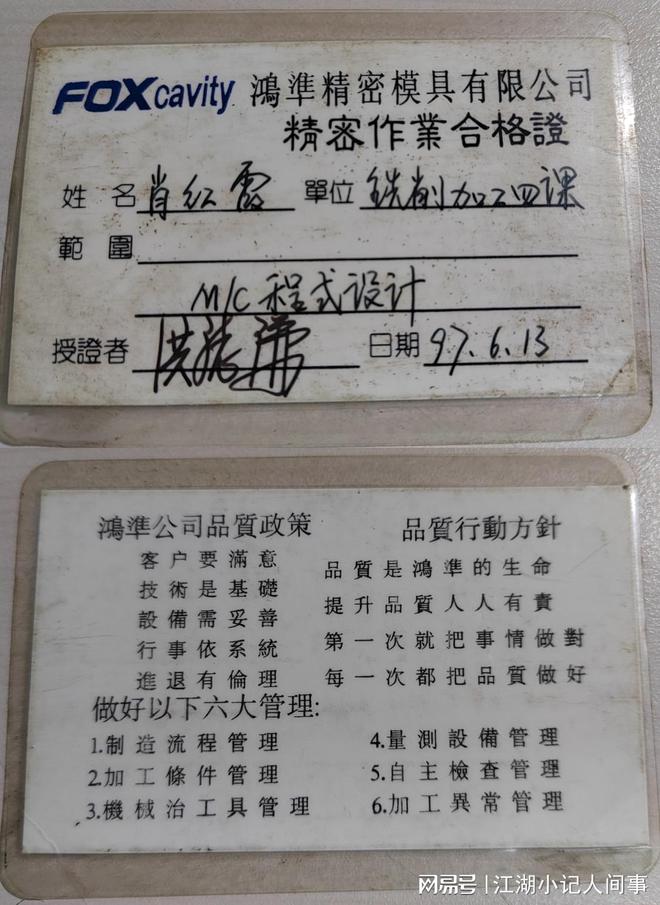 FOXcavity 鴻準精密模具有限公司
精密作業合格證
姓名 肖红霞 單位 铣削加工四课
範圍
M/C 程式设计
授證者 日期 97.6.13
鴻準公司品質政策
客户要滿意
技術是基礎
設備需妥善
行事依系統
進退有倫理
品質行動方針
品質是鴻準的生命
提升品質人人有責
第一次就把事情做對
每一次都把品質做好
做好以下六大管理:
1.制造流程管理
2.加工條件管理
3.機械治工具管理
4.量測設備管理
5.自主檢查管理
6.加工異常管理
网易号 | 江湖小记人间事